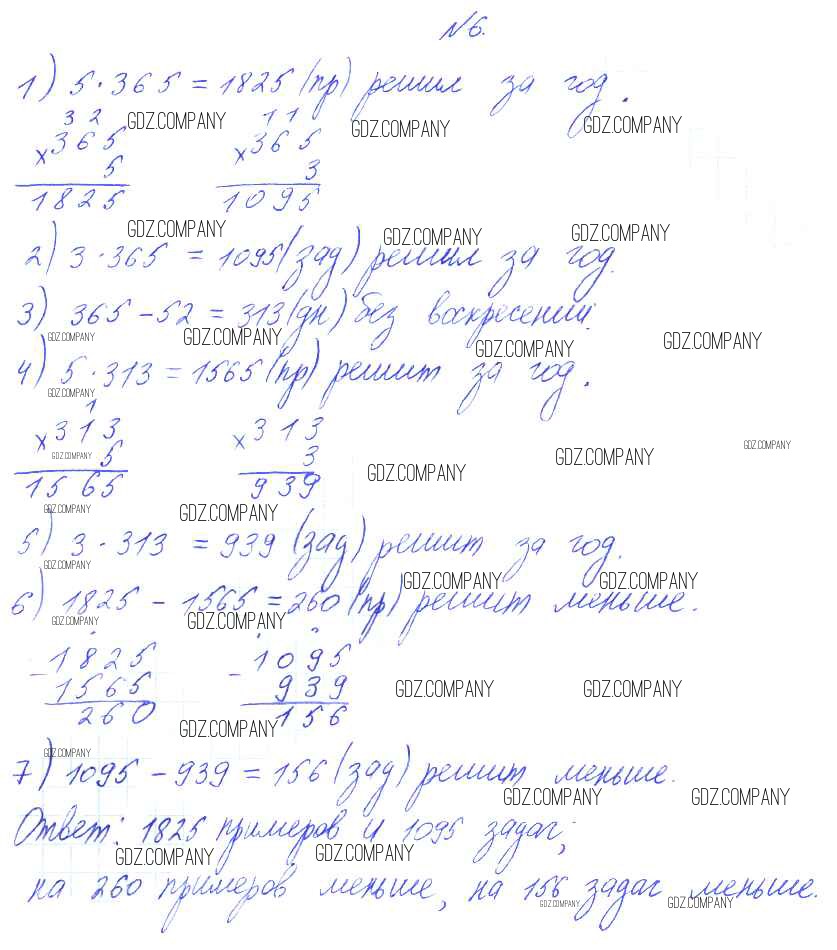 №6.
1) 5·365 = 1825 (пр) решил за год.
3 2 GDZ.COMPANY 1 1 GDZ.COMPANY GDZ.COMPANY
×365 ×365
5 3
1825 1095
GDZ.COMPANY GDZ.COMPANY GDZ.COMPANY
2) 3·365 = 1095 (зад) решил за год.
3) 365 - 52 = 313 (дн) без воскресений.
GDZ.COMPANY GDZ.COMPANY GDZ.COMPANY GDZ.COMPANY
4) 5·313 = 1565 (пр) решит за год.
GDZ.COMPANY
1
×313 ×313
GDZ.COMPANY 5 3 GDZ.COMPANY GDZ.COMPANY GDZ.COMPANY
1565 939
GDZ.COMPANY GDZ.COMPANY
5) 3·313 = 939 (зад) решит за год.
GDZ.COMPANY GDZ.COMPANY GDZ.COMPANY
6) 1825 - 1565 = 260 (пр) решит меньше.
GDZ.COMPANY GDZ.COMPANY
-1825 -1095
1565 939 GDZ.COMPANY GDZ.COMPANY
260 156
GDZ.COMPANY
GDZ.COMPANY
7) 1095 - 939 = 156 (зад) решит меньше.
GDZ.COMPANY GDZ.COMPANY
Ответ: 1825 примеров и 1095 задач;
GDZ.COMPANY GDZ.COMPANY
на 260 примеров меньше, на 156 задач меньше.
GDZ.COMPANY GDZ.COMPANY